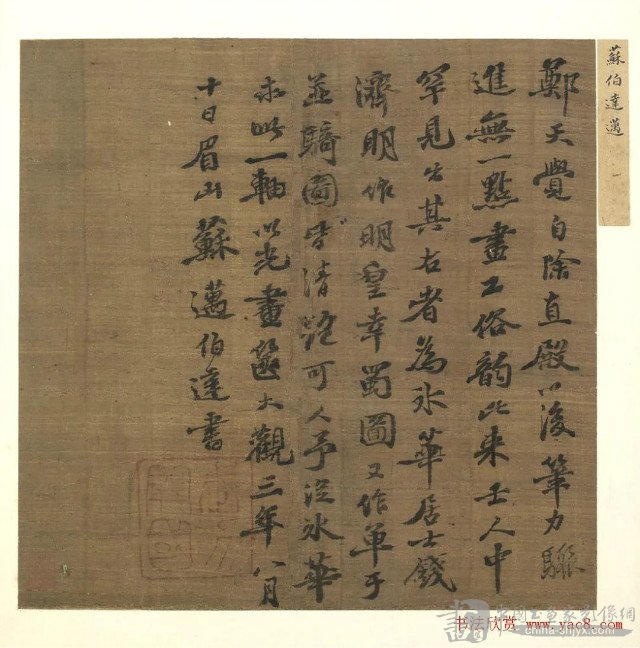 鄭天覺自除直殿以後筆力驟
進無一點畫工俗韵比来士人中
罕見出其右者為氷華居士錢
濟明作明皇幸蜀圖又作單于
並騎圖皆清絶可人予從氷華
求此一軸以光畫篋大觀三年八月
十日眉山蘇邁伯達書
蘇伯達邁
書法欣赏 www.yac8.com
中國书画家影像網
china-shjyx.com